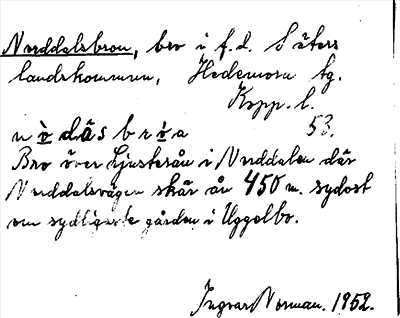 Norddalsbron, bro i f.d. Säters
landskommun, Hedemora tg.
Kopp. l.
53.
Bro över Ljusterån i Norddalen där
Norddalsvägen skär ån 450 m. sydost
om sydligaste gården i Uggelbo.
Ingvar Norman. 1952.